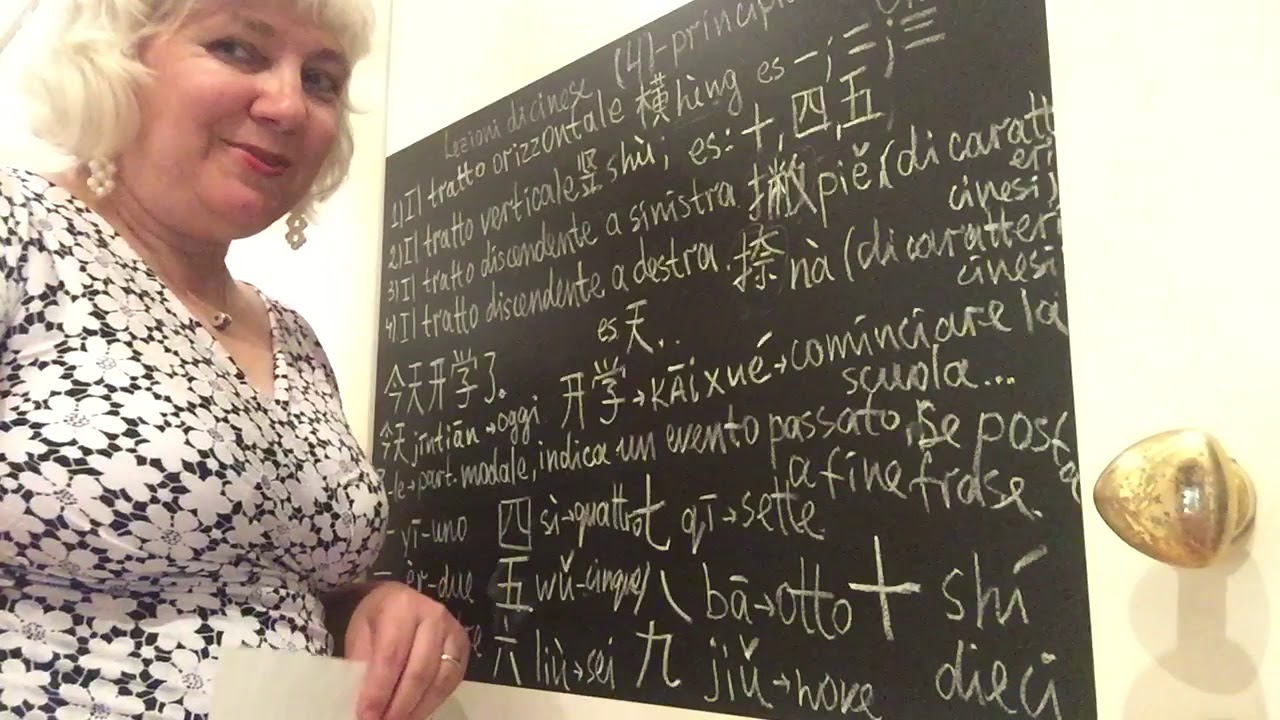 Lezioni di cinese (4)-principi
1) Il tratto orizzontale 横 hèng es 一; 二; 三
2) Il tratto verticale 竖 shù; es: 十, 四, 五
3) Il tratto discendente a sinistra 撇 piě (di caratteri cinesi)
4) Il tratto discendente a destra. 捺 nà (di caratteri cinesi
es 天..
今天开学了。
开学→kāi xué→cominciare la scuola...
今天 jīntiān→oggi
le→part. modale, indica un evento passato, se posta a fine frase.
一 yī-uno 四 sì→quattro 七 qī→sette
二 èr-due 五 wǔ-cinque 八 bā→otto 十 shí
六 liù→sei 九 jiǔ→nove dieci